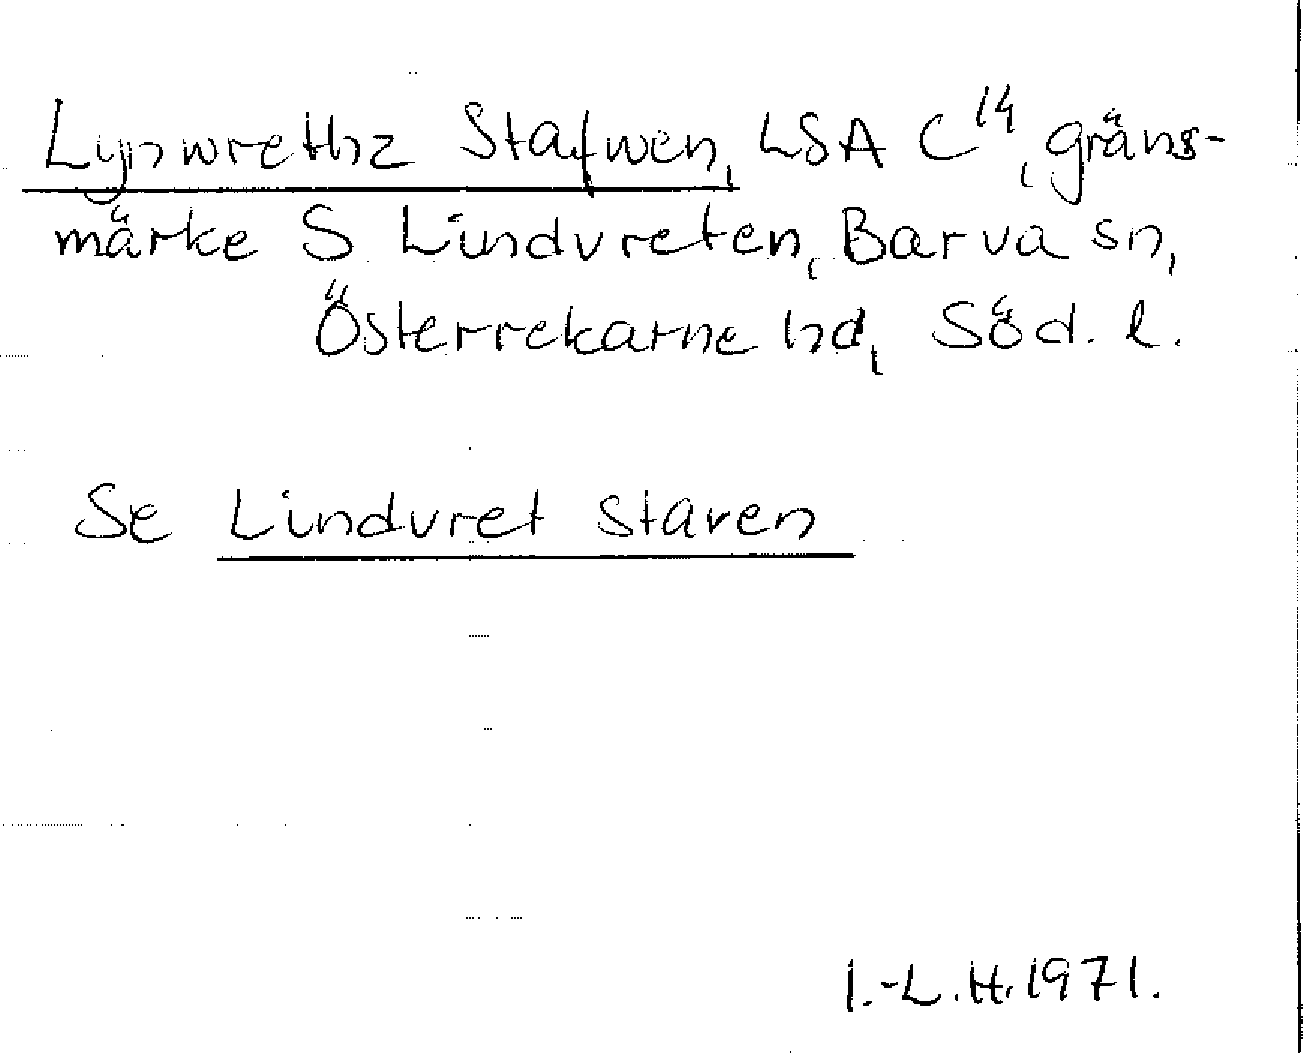 Lijnwrethz Stafwen, LSA C14, gräns-
märke S Lindvreten, Barva sn,
Österrekarne hd, Söd. l.
Se Lindvret staren
I.-L.H. 1971.